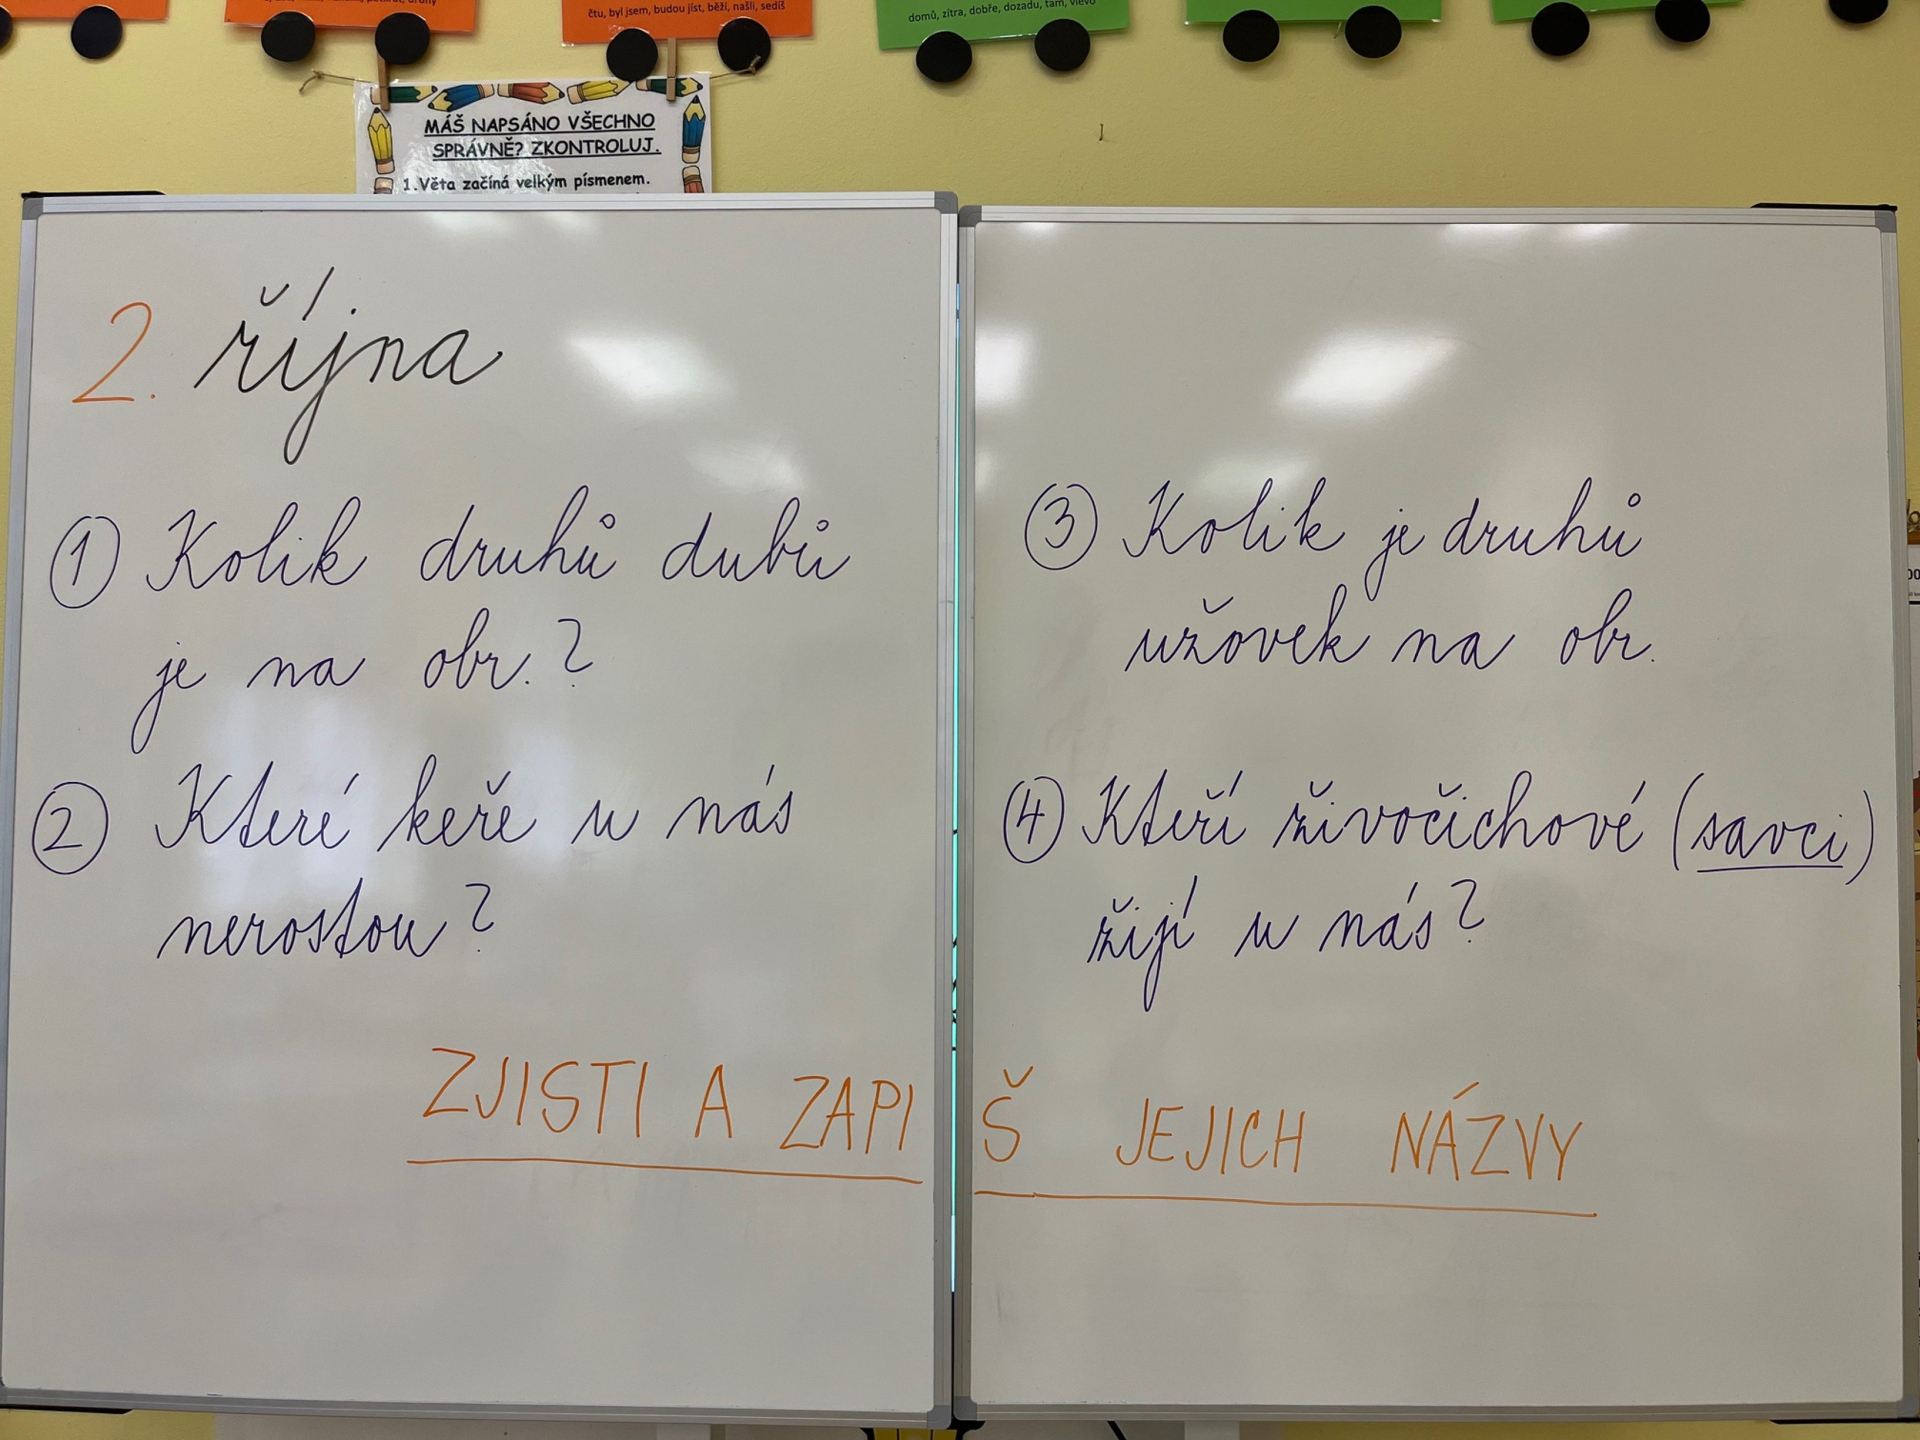 čtu, byl jsem, budou jíst, běží, našli, sedíš
domů, zítra, dobře, dozadu, tam, vlevo
MÁŠ NAPSÁNO VŠECHNO
SPRÁVNĚ? ZKONTROLUJ.
1.Věta začíná velkým písmenem.
2. října
1 Kolik druhů dubů
je na obr.?
2 Které keře u nás
nerostou?
3 Kolik je druhů
užovek na obr.
4 Kteří živočichové (savci)
žijí u nás?
ZJISTI A ZAPIŠ JEJICH NÁZVY